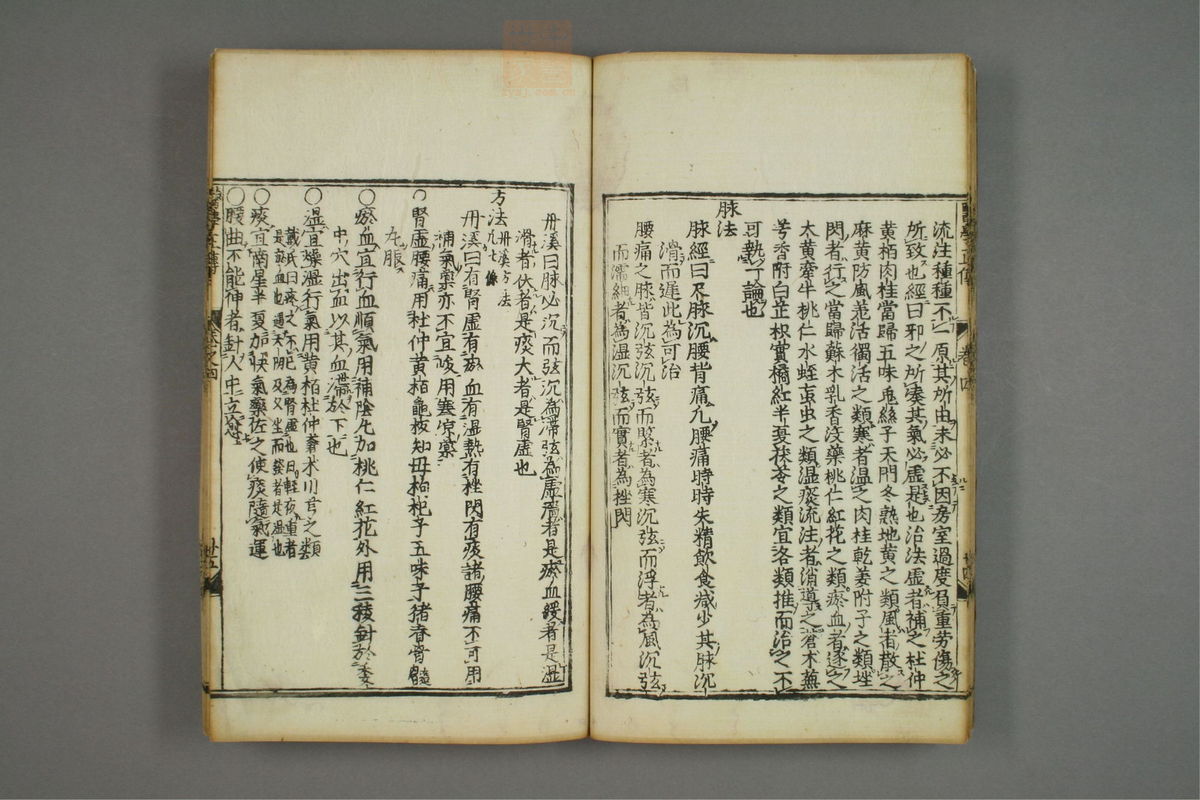 流注種種不一原其所由未必不因房室過度負重劳傷之
所致也經曰邪之所湊其氣必虛是也治法虛者補之杜仲
黄栢肉桂當歸五味兎絲子天門冬熟地黄之類風者散之
麻黄防風羗活獨活之類寒者温之肉桂乾姜附子之類挫
閃者行之當歸蘇木乳香没藥桃仁紅花之類瘀血者逐之
大黄牽牛桃仁水蛭䖟虫之類湿痰流注者消導之蒼术撫
芎香附白芷枳實橘紅半夏茯苓之類宜各類推而治之不
可執一論也
脉法
脉經曰尺脉沉腰背痛凡腰痛時時失精飲食减少其脉沉
滑而遲此為可治
腰痛之脉皆沉弦沉弦而緊者為寒沉弦而浮者為風沉弦
而濡細者為湿沉弦而實者為挫閃
丹溪曰脉必沉而弦沉為滞弦為虛濇者是瘀血緩者是湿
滑者伏者是痰大者是腎虛也
方法丹溪方法凡九條
丹溪曰有腎虛有瘀血有湿熱有挫閃有痰諸腰痛不可用
補氣藥亦不宜峻用寒凉藥
○腎虛腰痛用杜仲黄栢龜板知母枸杞子五味子猪脊骨髓
丸服
○瘀血宜行血順氣用補陰丸加桃仁紅花外用三稜針於委
中穴出血以其血滯於下也
○湿宜燥湿行氣用黄栢杜仲蒼术川芎之類
戴氏曰疼之不已為腎虛也日輕夜重者
是瘀血也遇天陰及久坐而發者是湿也
○痰宜南星半夏加快氣藥佐之使痰隨氣運
○腰曲不能伸者針人中立愈
醫學正傳
卷之四
廿五